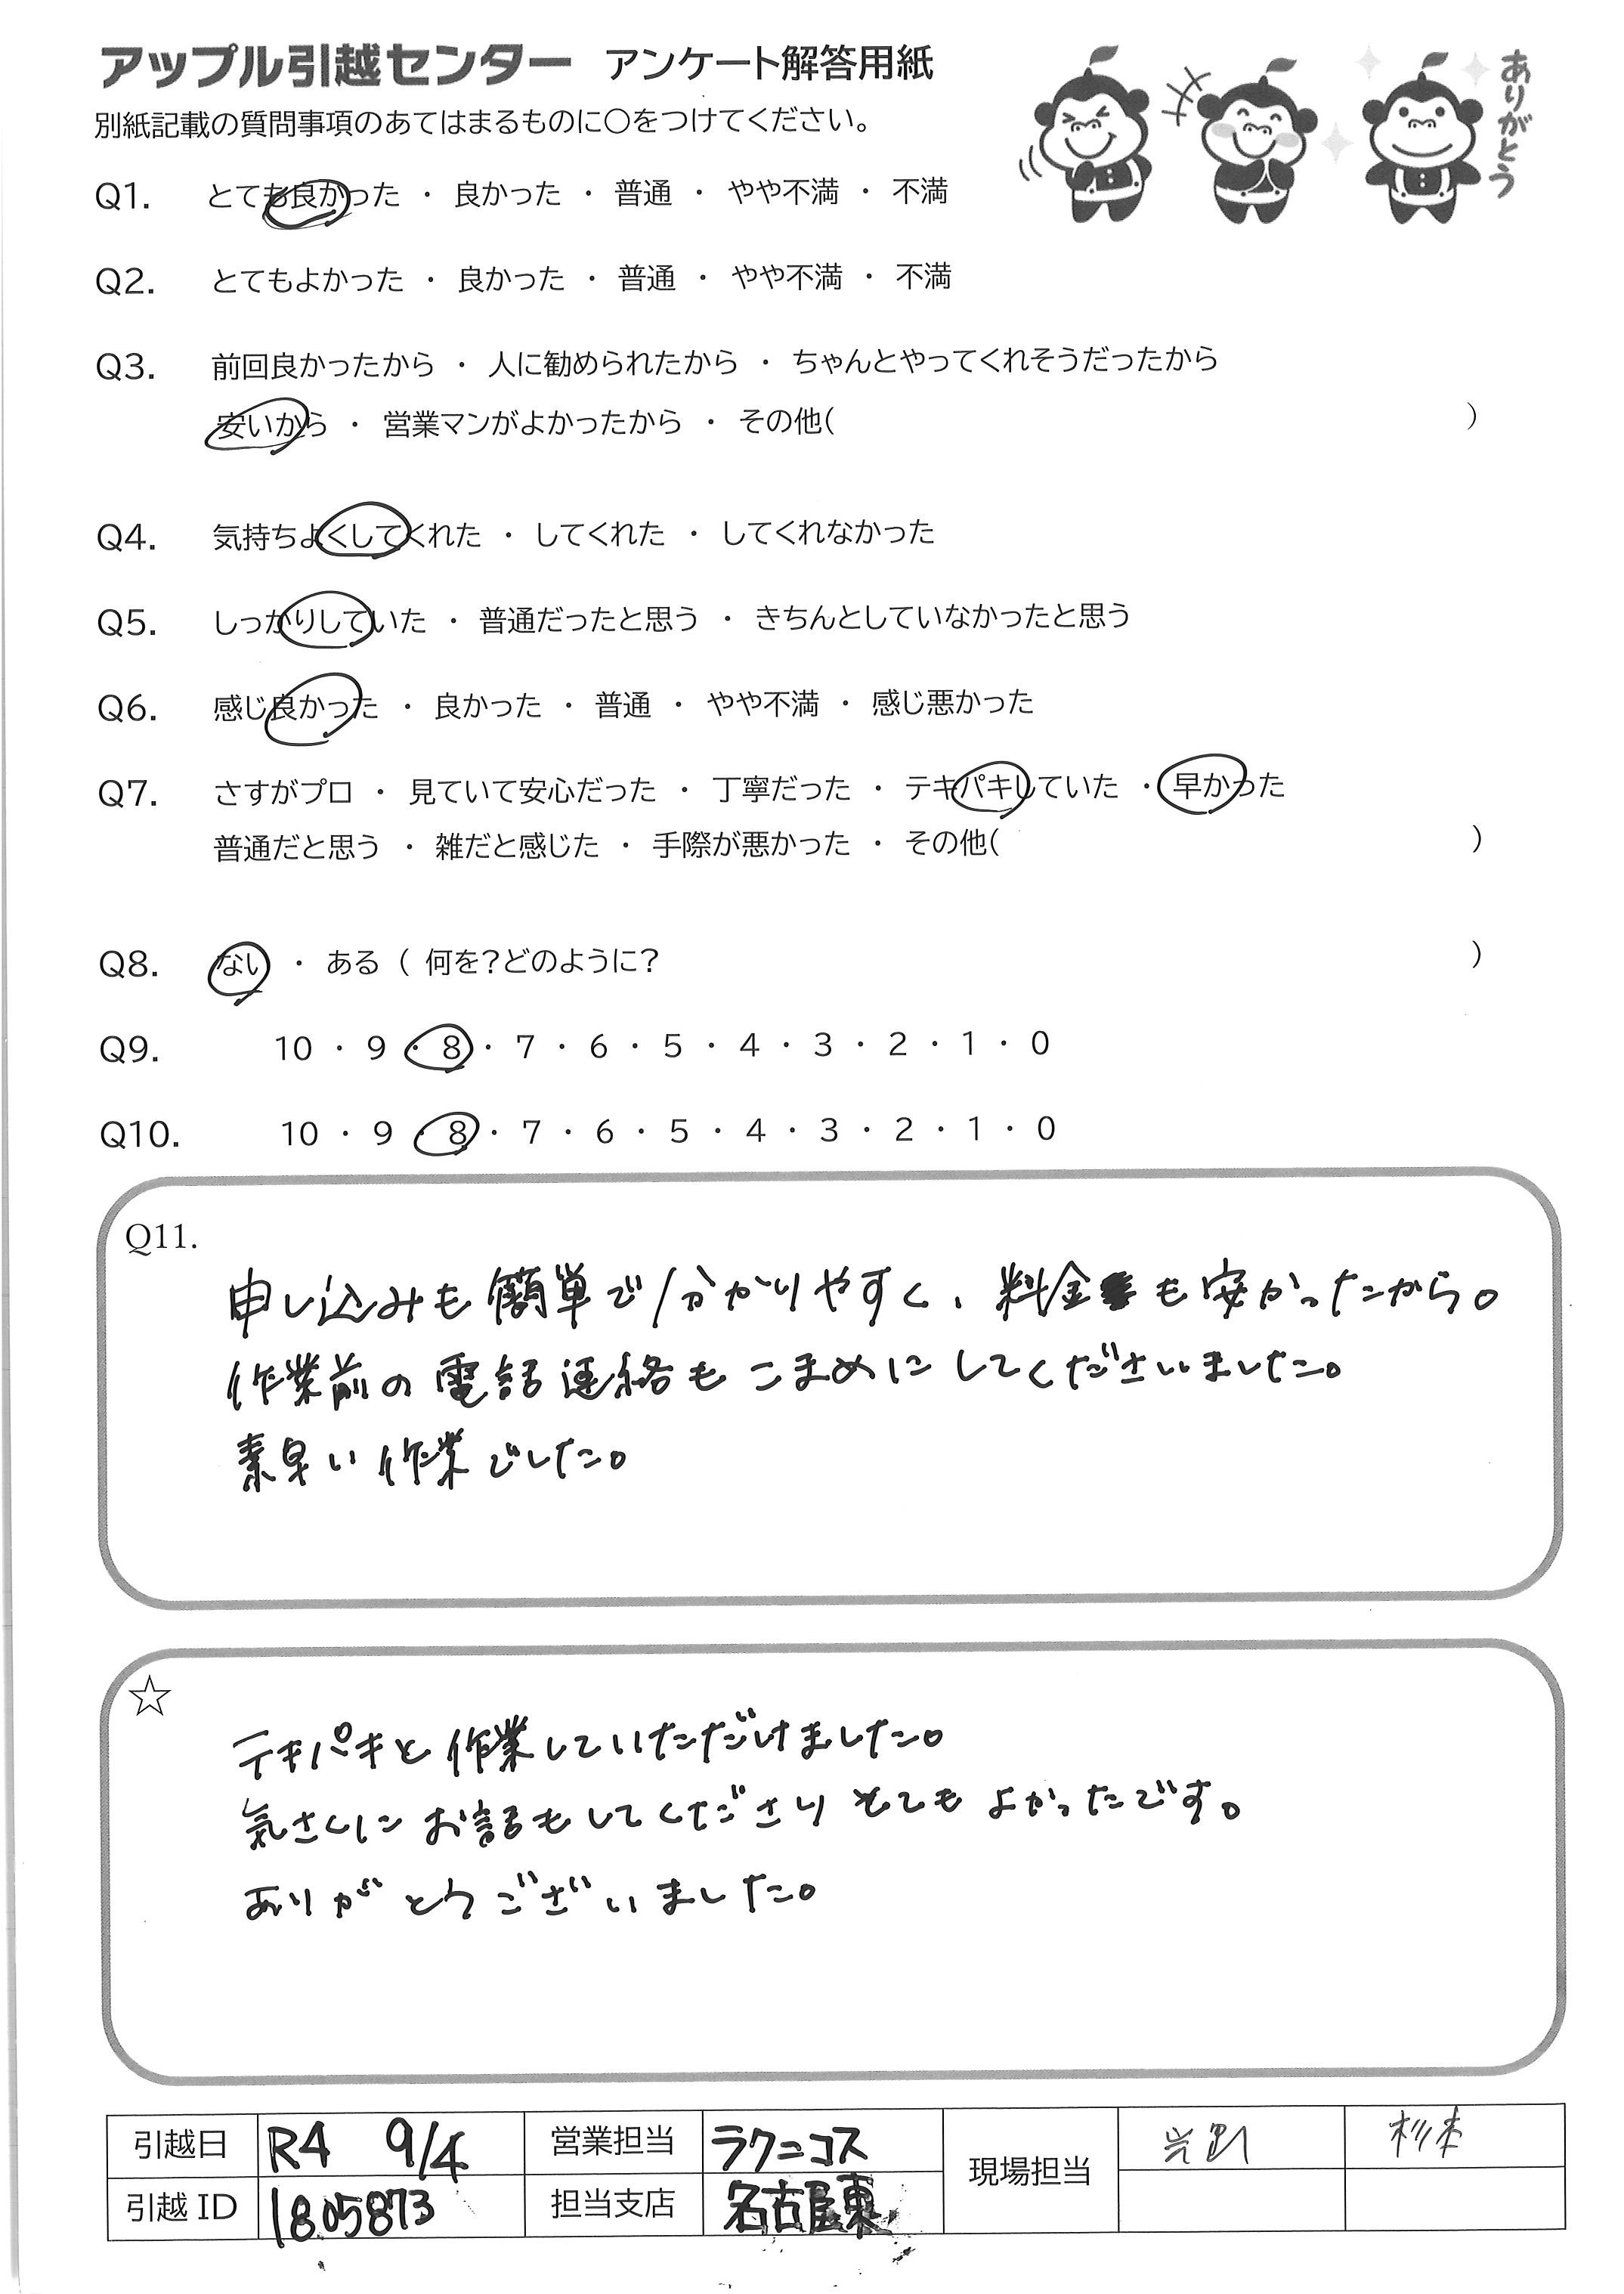 アップル引越センター アンケート解答用紙
ありがとう
別紙記載の質問事項のあてはまるものに〇をつけてください。
Q1. とても良かった ・ 良かった ・ 普通 ・ やや不満 ・ 不満
Q2. とてもよかった ・ 良かった ・ 普通 ・ やや不満 ・ 不満
Q3. 前回良かったから ・ 人に勧められたから ・ ちゃんとやってくれそうだったから
安いから ・ 営業マンがよかったから ・ その他( )
Q4. 気持ちよくしてくれた ・ してくれた ・ してくれなかった
Q5. しっかりしていた ・ 普通だったと思う ・ きちんとしていなかったと思う
Q6. 感じ良かった ・ 良かった ・ 普通 ・ やや不満 ・ 感じ悪かった
Q7. さすがプロ ・ 見ていて安心だった ・ 丁寧だった ・ テキパキしていた ・ 早かった
普通だと思う ・ 雑だと感じた ・ 手際が悪かった ・ その他( )
Q8. ない ・ ある ( 何を?どのように? )
Q9. 10 ・ 9 ・ 8 ・ 7 ・ 6 ・ 5 ・ 4 ・ 3 ・ 2 ・ 1 ・ 0
Q10. 10 ・ 9 ・ 8 ・ 7 ・ 6 ・ 5 ・ 4 ・ 3 ・ 2 ・ 1 ・ 0
Q11.
申し込みも簡単で分かりやすく、料金も安かったから。
作業前の電話連絡もこまめにしてくださいました。
素早い作業でした。
☆
テキパキと作業していただけました。
気さくにお話もしてくださりとてもよかったです。
ありがとうございました。
引越日 R4 9/4 営業担当 ラクニコス 現場担当 杉本
引越ID 1805873 担当支店 名古屋東